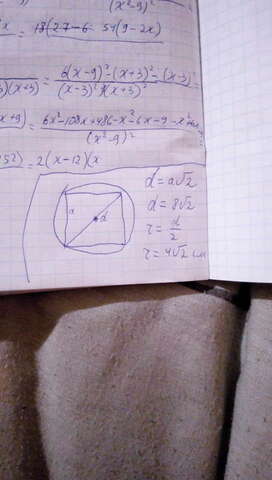 (x²-9)²
x = 18(27-6 54(9-2x)
)(x+3) = 6(x-9)²-(x+3)²-(x-3)² =
(x-3)² (x+3)²
x+9) = 6x²-108x+486-x²-6x-9-x²
(x²-9)²
52) = 2(x-12)(x
a
d
d=a√2
d=8√2
r=d/2
r=4√2 см